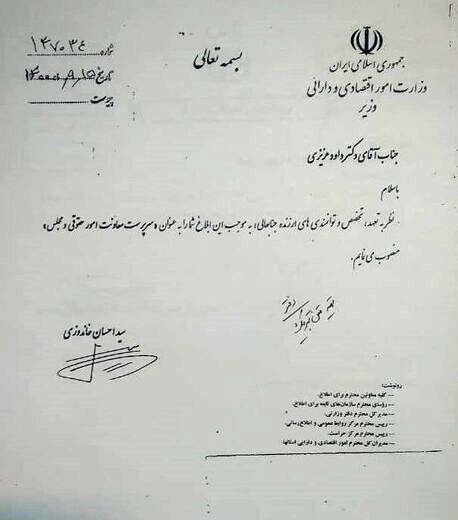 بسمه تعالی
جمهوری اسلامی ایران
وزارت امور اقتصادی و دارائی
وزیر
شماره ۱۴۷۰۳۴
تاریخ ۱۴۰۰،۹،۱۵
پیوست
جناب آقای دکتر داود عزیزی
باسلام
نظر به تعهد، تخصص و توانمندی های ارزنده جنابعالی، به موجب این ابلاغ شما را به عنوان «سرپرست معاونت امور حقوقی و مجلس»
منصوب می نمایم.
سید احسان خاندوزی
رونوشت:
– کلیه معاونین محترم برای اطلاع.
– روسای محترم سازمان‌های تابعه برای اطلاع.
– مدیر کل محترم دفتر وزارتی.
– رییس محترم مرکز روابط عمومی و اطلاع‌رسانی.
– رییس محترم مرکز حراست.
– مدیران کل محترم امور اقتصادی و دارایی استانها.